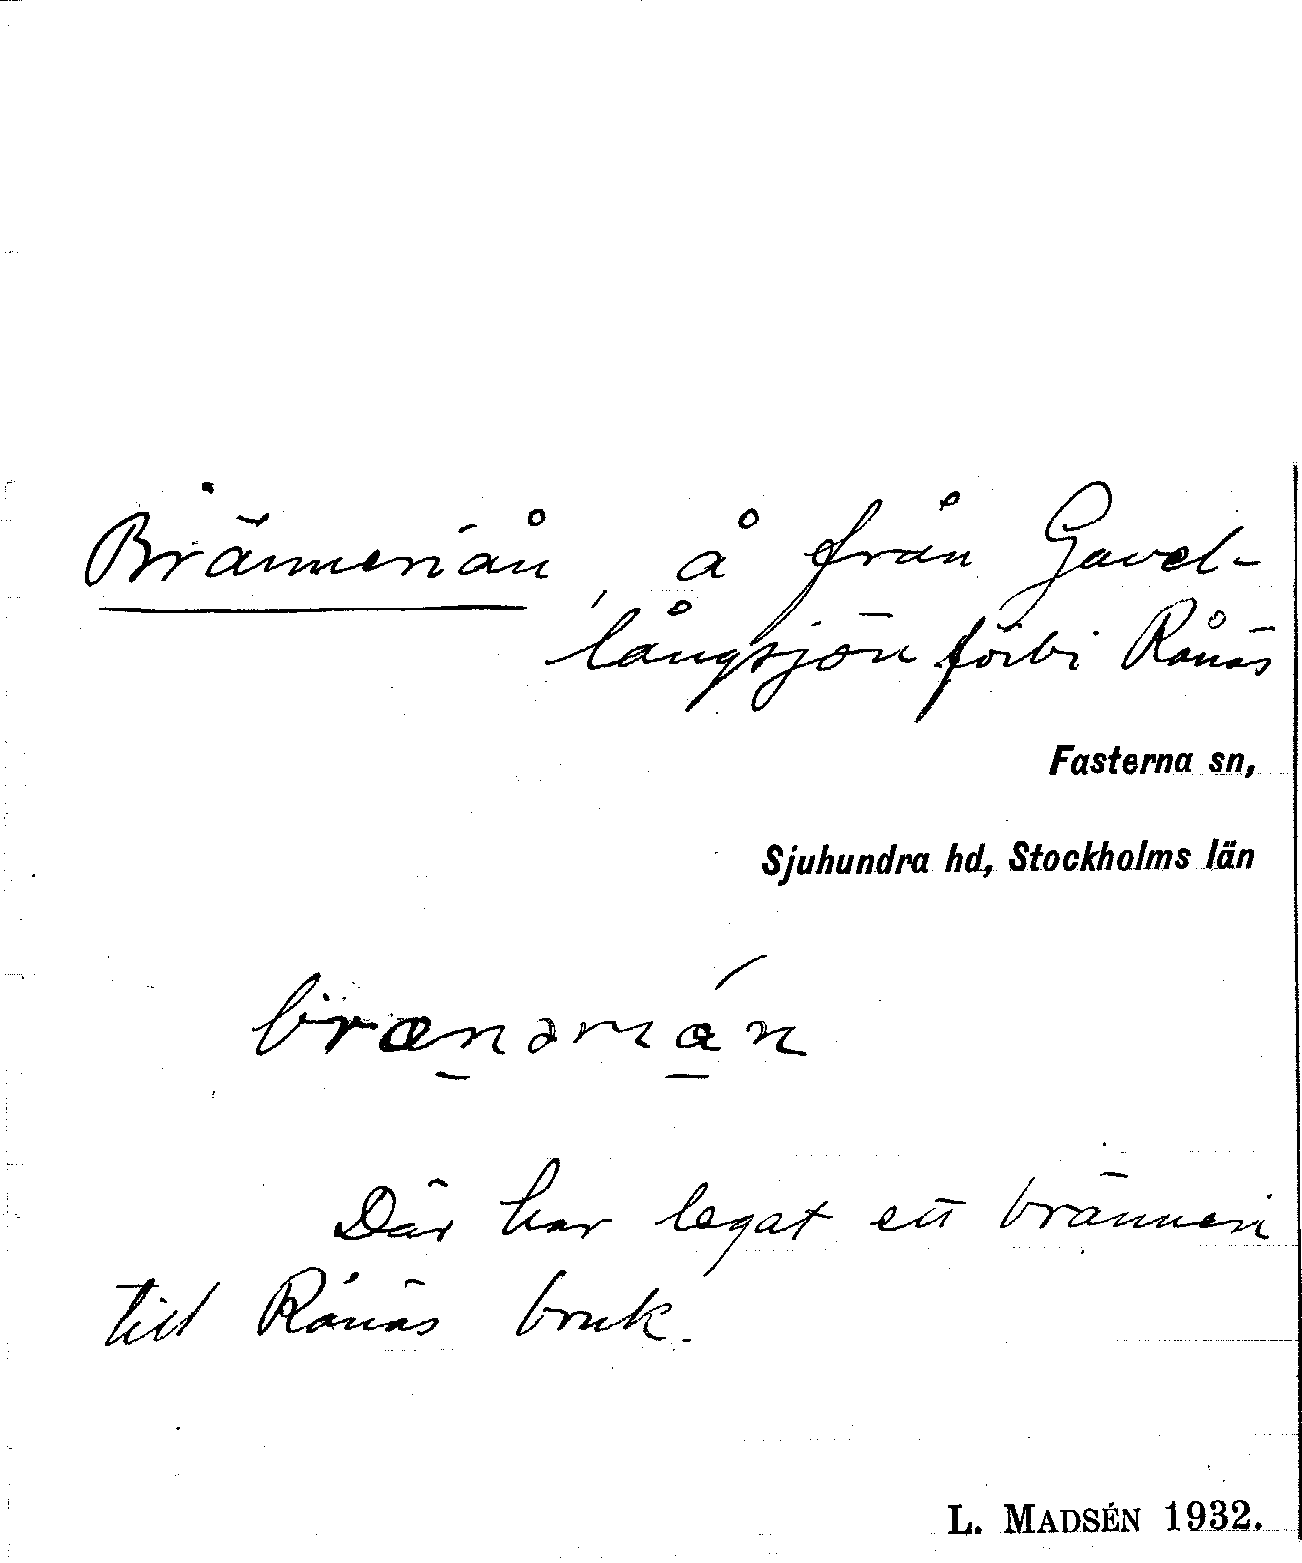 Bränneriån, å från Gavel-
långsjön förbi Rånäs
Fasterna sn,
Sjuhundra hd, Stockholms län
Där har legat ett bränneri
till Rånäs bruk.
L. MADSÉN 1932.